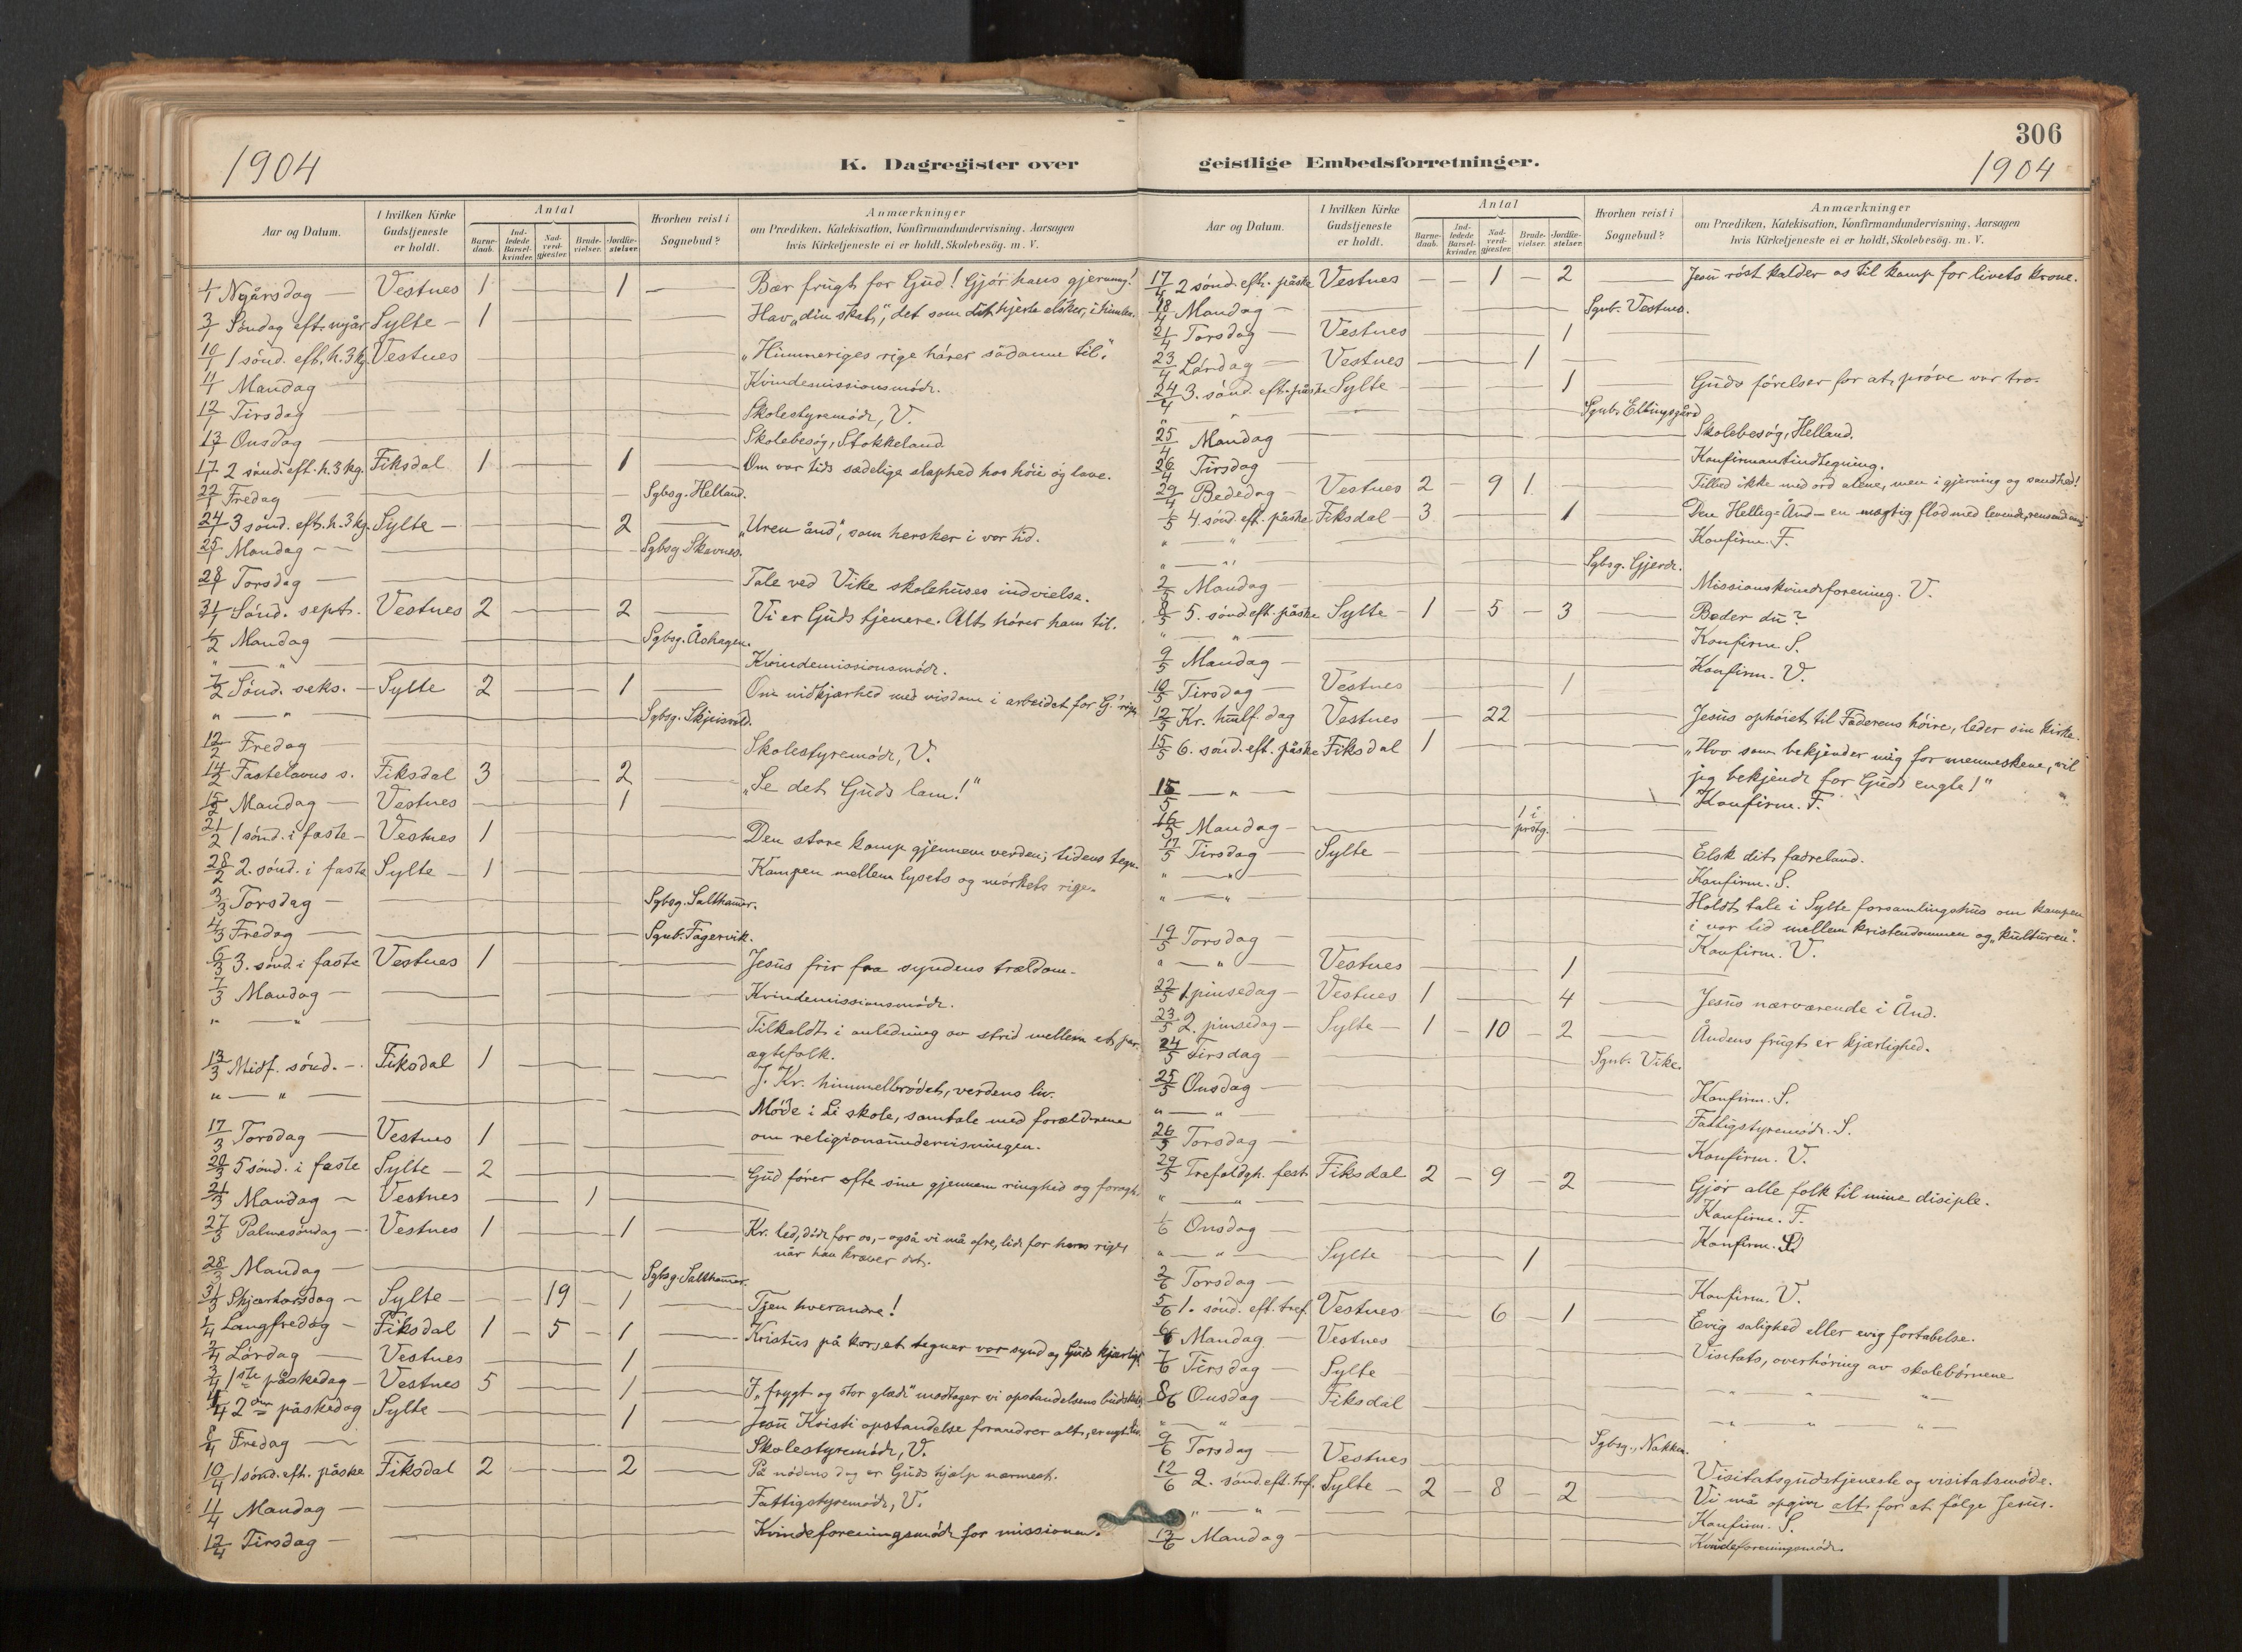 1904
K. Dagregister over
Aar og Datum.
I hvilken Kirke Gudstjeneste er holdt.
Antal
Barne-daab.
Ind-ledede Barsel-kvinder.
Nad-verd-gjæster.
Brude-vielser.
Jordfæ-stelser.
Hvorhen reist i Sognebud?
Anmærkninger
om Prædiken, Katekisation, Konfirmandundervisning, Aarsagen
hvis Kirketjeneste ei er holdt, Skolebesøg, m. V.
1/1 Nyårsdag — Vestnes 1 — 1 — Bær frugt for Gud! Gjør hans gjerning!
3/1 Søndag eft. nyår Sylte — 1 — Hav „din skat", det som dit hjerte elsker, i himlen.
10/1 1 sønd. eft. h. 3 kg. Vestnes — „Himmeriges rige hører sådanne til".
11/1 Mandag — Kvindemissionsmøde.
12/1 Tirsdag — Skolestyremøde, V.
13/1 Onsdag — Skolebesøg, Stokkeland
17/1 2 sønd. eft. h. 3 kg. Fiksdal 1 — 1 — Om vor tids sædelige slaphed hos høie og lave.
22/1 Fredag — Sgbsg. Helland.
24/1 3 sønd. eft. h. 3 kg. Sylte — 2 — „Uren ånd", som hersker i vor tid.
25/1 Mandag — Sgbsg Skavnes.
28/1 Torsdag — Tale ved Vike skolehuses indvielse.
31/1 Sønd. sept. Vestnes 2 — 2 — Vi er Guds tjenere. Alt hører ham til.
1/2 Mandag — Sgbsg. Åshagen.
" — " Kvindemissionsmøde.
7/2 Sønd. seks. — Sylte 2 — 1 — Om nidkjærhed med visdom i arbeidet for G. rige
" — " Sgbsg. Skjeisvold.
12/2 Fredag — Skolestyremøde, V.
14/2 Fastelavns s. Fiksdal 3 — 2 — „Se det Guds lam!"
15/2 Mandag — Vestnes — 1 —
21/2 1 sønd. i faste — Vestnes 1 — Den store kamp gjennem verden; tidens tegn.
28/2 2. sønd. i faste Sylte — 1 — Kampen mellem lysets og mørkets rige.
3/3 Torsdag — Sgbsg. Salthamer.
4/3 Fredag — Sgnb. Fagervik.
6/3 3. sønd. i faste Vestnes 1 — Jesus frir fra syndens trældom.
7/3 Mandag — Kvindemissionsmøde.
" — " Tilkaldt i anledning av strid mellem et par
ægtefolk.
13/3 Midf. sønd. — Fiksdal 1 — J. Kr. himmelbrødet, verdens liv.
" — " — Møde i Li skole, samtale med forældrene
om religionsundervisningen.
17/3 Torsdag — Vestnes 1 —
20/3 5 sønd. i faste Sylte — 2 — Gud fører ofte sine gjennem ringhed og foragt.
21/3 Mandag — Vestnes — 1 —
27/3 Palmesøndag — Vestnes 1 — 1 — Kr. led, døde for os, – også vi må ofre, lide for hans rige,
når han kræver det.
28/3 Mandag — Sgbsg. Salthamer.
31/3 Skjærtorsdag — Sylte — 19 — 1 — Tjen hverandre!
1/4 Langfredag — Fiksdal 1 — 5 — 1 — Kristus på korset tegner vor synd og Guds kjærligh.
2/4 Lørdag — Vestnes — 1 —
3/4 1ste påskedag — Vestnes 5 — 1 — I „frygt og stor glæde" modtager vi opstandelsens budskab.
4/4 2den påskedag Sylte — 1 — Jesu Kristi opstandelse forandrer alt, er nyt liv.
8/4 Fredag — Skolestyremøde, V.
10/4 1 sønd. eft. påske Fiksdal 2 — 2 — På nødens dag er Guds hjælp nærmest.
11/4 Mandag — Fattigstyremøde, V.
12/4 Tirsdag — Kvindeforeningsmøde for missionen.
306
geistlige Embedsforretninger.
1904
Aar og Datum.
I hvilken Kirke Gudstjeneste er holdt.
Antal
Barne-daab.
Ind-ledede Barsel-kvinder.
Nad-verd-gjæster.
Brude-vielser.
Jordfæ-stelser.
Hvorhen reist i Sognebud?
Anmærkninger
om Prædiken, Katekisation, Konfirmandundervisning, Aarsagen
hvis Kirketjeneste ei er holdt, Skolebesøg, m. V.
17/4 2 sønd. eft. påske Vestnes — — 1 — 2 — Jesu røst kalder os til kamp for livets krone.
18/4 Mandag — Sgnb. Vestnes.
21/4 Torsdag — Vestnes — 1 —
23/4 Lørdag — Vestnes — 1 —
24/4 3. sønd. eft. påske Sylte — 1 — Guds førelser for at prøve vor tro.
" — " Sgnb. Ellingsgård
25/4 Mandag — Skolebesøg, Helland.
26/4 Tirsdag — Konfirmantindtegning.
29/4 Bededag — Vestnes 2 — 9 1 — Tilbed ikke med ord alene, men i gjerning og sandhed!
1/5 4. sønd. eft. påske Fiksdal — 3 — 1 — Den Hellig-Ånd – en mægtig flod med levende, rensend
" — " Konfirm. F.
" — " Sgbsg. Gjerde.
2/5 Mandag — Missionskvindeforening. V.
8/5 5. sønd eft. påske Sylte — 1 — 5 — 3 — Beder du?
" — " Konfirm S.
9/5 Mandag — Konfirm. V.
10/5 Tirsdag — Vestnes — 1
12/5 Kr. himlf. dag Vestnes — 22 — Jesus ophøiet til Faderens høire, leder sin kirke.
15/5 6. sønd. eft. påske Fiksdal 1 — „Hvo som bekjender mig for menneskene, vil
jeg bekjende for Guds engle!"
15/5 — " — Konfirm. F.
16/5 Mandag — 1 i prstg.
17/5 Tirsdag — Sylte — Elsk dit fædreland.
" — " Konfirm. S.
" — " Holdt tale i Sylte forsamlingshus om kampen
i vor tid mellem kristendommen og „kulturen".
19/5 Torsdag — Konfirm. V.
" — " — Vestnes — 1
22/5 1. pinsedag — Vestnes 1 — 4 — Jesus nærværende i Ånd.
23/5 2. pinsedag — Sylte — 1 — 10 — 2 — Åndens frugt er kjærlighed.
24/5 Tirsdag — Sgnb. Vike.
25/5 Onsdag — Konfirm. S.
" — " Fattigstyremøde. S.
26/5 Torsdag — Konfirm. V.
29/5 Trefoldgh. fest Fiksdal 2 — 9 — 2 — Gjør alle folk til mine disiple.
" — " Konfirm. F.
1/6 Onsdag — Konfirm. S
" — " — Sylte — 1
2/6 Torsdag — Konfirm. V.
5/6 1. sønd. eft. tref. Vestnes — 6 — 1 — Evig salighed eller evig fortabelse.
6/6 Mandag — Vestnes — Visitats, overhøring av skolebørnene
7/6 Tirsdag — Sylte — " " "
8/6 Onsdag — Fiksdal — " " "
" — " Sgbsg., Nakken.
9/6 Torsdag — Vestnes — Visitatsgudstjeneste og visitatsmøde.
12/6 2. sønd. eft. tref. Sylte — 2 — 8 — 2 — Vi må opgive alt for at følge Jesus.
" " Konfirm. S.
13/6 Mandag — Kvindeforeningsmøde.